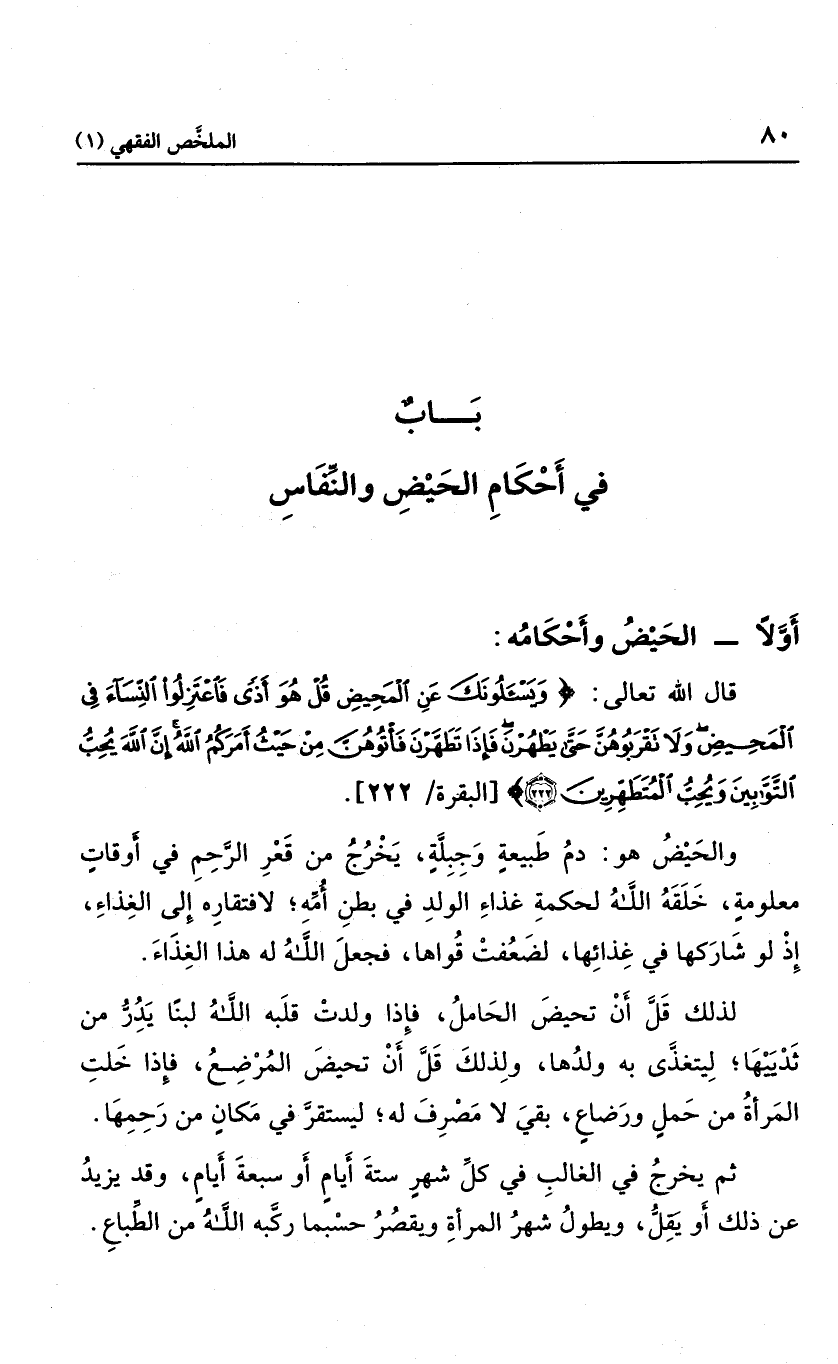 ٨٠ الملخَّص الفقهي (١)
بَـــابٌ
في أَحْكَامِ الحَيْضِ والنِّفَاسِ
أَوَّلاً ــ الحَيْضُ وأَحْكَامُه :
قال الله تعالى : ﴿ وَيَسْـَٔلُونَكَ عَنِ ٱلْمَحِيضِ قُلْ هُوَ أَذًى فَٱعْتَزِلُواْ ٱلنِّسَآءَ فِى
ٱلْمَحِيضِۖ وَلَا تَقْرَبُوهُنَّ حَتَّىٰ يَطْهُرْنَۖ فَإِذَا تَطَهَّرْنَ فَأْتُوهُنَّ مِنْ حَيْثُ أَمَرَكُمُ ٱللَّهُۚ إِنَّ ٱللَّهَ يُحِبُّ
ٱلتَّوَّٰبِينَ وَيُحِبُّ ٱلْمُتَطَهِّرِينَ ٢٢٢﴾ [البقرة/ ٢٢٢].
والحَيْضُ هو: دمُ طَبيعةٍ وَجِبِلَّةٍ، يَخْرُجُ من قَعْرِ الرَّحِمِ في أَوقاتٍ
معلومةٍ، خَلَقَهُ اللَّـٰهُ لحكمةِ غذاءِ الولدِ في بطنِ أُمِّهِ؛ لافتقارِه إلى الغِذاءِ،
إِذْ لو شَارَكها في غِذائِها، لضَعُفتْ قُواها، فجعلَ اللَّـٰهُ له هذا الغِذَاءَ.
لذلك قَلَّ أَنْ تحيضَ الحَاملُ، فإِذا ولدتْ قلَبه اللَّـٰهُ لبنًا يَدُرُّ من
ثَدْيَيْهَا؛ لِيتغذَّى به ولدُها، ولِذلكَ قَلَّ أَنْ تحيضَ المُرْضِعُ، فإِذا خَلتِ
المَرأةُ من حَملٍ ورَضاعٍ، بقيَ لا مَصْرِفَ له؛ ليستقرَّ في مَكانٍ من رَحِمِهَا.
ثم يخرجُ في الغالبِ في كلِّ شهرٍ ستةَ أَيامٍ أَو سبعةَ أَيامٍ، وقد يزيدُ
عن ذلك أَو يَقِلُّ، ويطولُ شهرُ المرأةِ ويقصُرُ حسْبما ركَّبه اللَّـٰهُ من الطِّباعِ.